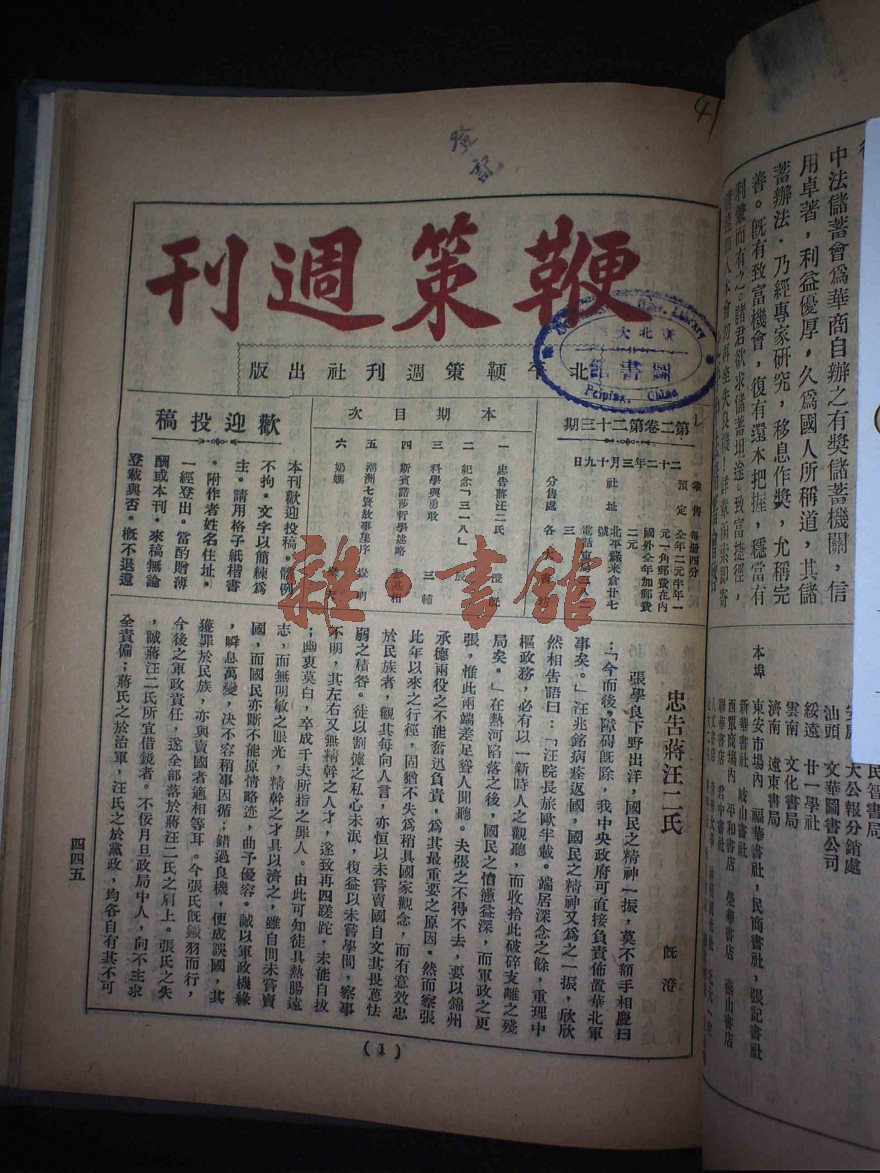 鞭策週刊
北平鞭策週刊社出版
第二卷第二十三期
二十二年三月十九日
零售 每册四分
預定 全年二元半年一
元一角郵費在內
國外全年加郵費
二元
社址 北平蘇米倉廿七
號
電話東局二八
三
分售處 各大書
本期目次
一 忠告蔣汪二氏 澄旣
二 紀念「三一八」
三 科學與勇敢 三輔
四 斯賓諾莎哲學述略
五 潮洲七賢故事集序
六 奶媽
歡迎投稿
本刊歡迎投稿。體例
不拘。文字以簡練為
主。請用格子紙楷書
。附作者姓名住址。
一經登出。當酌贈薄
酬或本刊。來稿無論
登載與否。概不退還
忠告蔣汪二氏
旣澄
張學良下野出洋，國民之精神一振，莫不額手相慶曰
：「今而後，障碍旣除，我中央政府可直接負責佈置華北軍
事矣。」汪兆銘病痊返國，國民之精神又為之一振，欣欣
然相告語曰：「汪院長旅歐半載。端居深念之餘，重理中
樞政務，必有以一新時人之觀聽，而收拾此破碎支離之殘
局矣。」在熱河陷落之後，國民之憤懣益深，而軍政之更
張，惟此兩端差足聳人聞聽。夫張之不得不去，要以錦州
承德兩役之不能奮迅負責，為其最重要之原因。然而察張
比年以來之行徑，固猶不失為稍具國家觀念，而有意效忠
於民族者，觀其每向人言，亦恒以未嘗賣國自文其畏葸怯
弱之積咎。徒以割據之私心未泯，復益以未嘗學問，察事
不明，其左右又無精幹之人才，遂致再四蹉跎，未能自拔
；幽衷莫白，卒成千夫所指之罪人。由此可知徒具熱腸遠
志，而無明敏之眼光，精幹之才具以濟之，雖自問未嘗賣
國，而國民亦斷不能原情略迹，曲予優容。誠以軍政機緣
，瞬息萬變，决不容稍事因循；錯過良機，便成誤國，其
獲罪於民族，亦與賣國者適相等耳。今張氏旣鎩羽而行，
今後之軍政責任，遂全部落於蔣汪二氏之肩上。張氏之失
，誠蔣汪二氏所宜借鏡者。不佞月旦政局中人，向不主求
全責備；蔣氏之於治軍，汪氏之於黨政，均各自有其不可
(1)
四四五
雜·書館
圖書館
Peiping, China
登記
中法儲蓄會為華商自辦之有獎儲蓄機關，信
用卓著，利益優厚，久為國人所稱道，其儲
蓄辦法．乃經專家研究，移息作獎，允稱完
善。旣有致富機會，復有還本把握，穩當有
利兼而有之。諸君欲求儲蓄坦途。致富捷徑，
民智書局
大公報分銷處
汕頭 文華圖書公司
綏遠 廿一學社
雲南 文化書局
濟南 遠東書局
本埠
東安市場內 福華書社，民商書社，張記書社
新華書社 岐山書社
西單商場內 平和書店 榮華書店 商山書店
聯華書店 君中書社